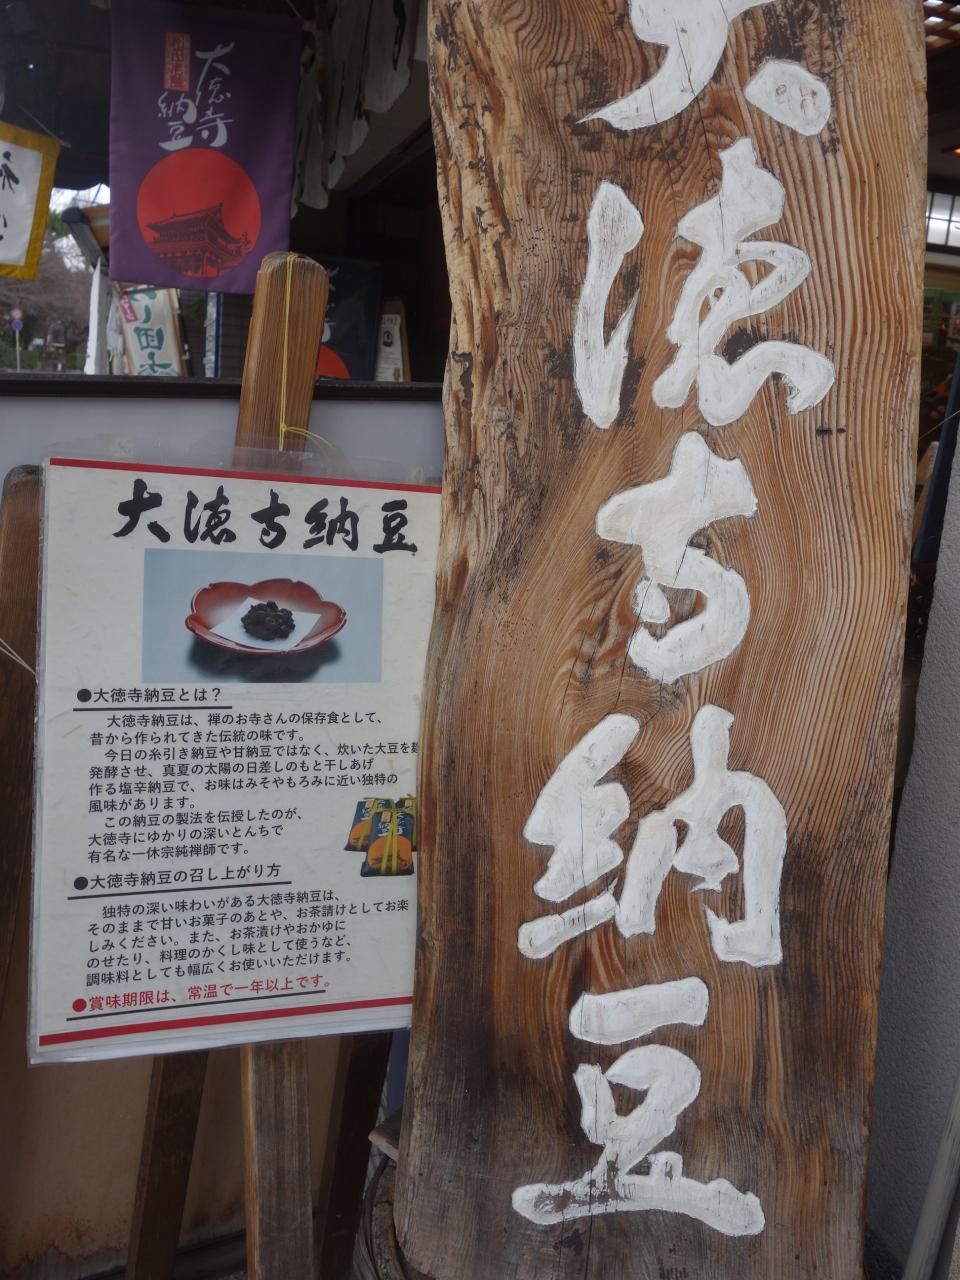 大徳寺納豆
大徳寺
納豆
大徳寺納豆
●大徳寺納豆とは？
大徳寺納豆は、禅のお寺さんの保存食として、
昔から作られてきた伝統の味です。
今日の糸引き納豆や甘納豆ではなく、炊いた大豆を麹
発酵させ、真夏の太陽の日差しのもと干しあげ
作る塩辛納豆で、お味はみそやもろみに近い独特の
風味があります。
この納豆の製法を伝授したのが、
大徳寺にゆかりの深いとんちで
有名な一休宗純禅師です。
●大徳寺納豆の召し上がり方
独特の深い味わいがある大徳寺納豆は、
そのままで甘いお菓子のあとや、お茶請けとしてお楽
しみください。また、お茶漬けやおかゆに
のせたり、料理のかくし味として使うなど、
調味料としても幅広くお使いいただけます。
●賞味期限は、常温で一年以上です。